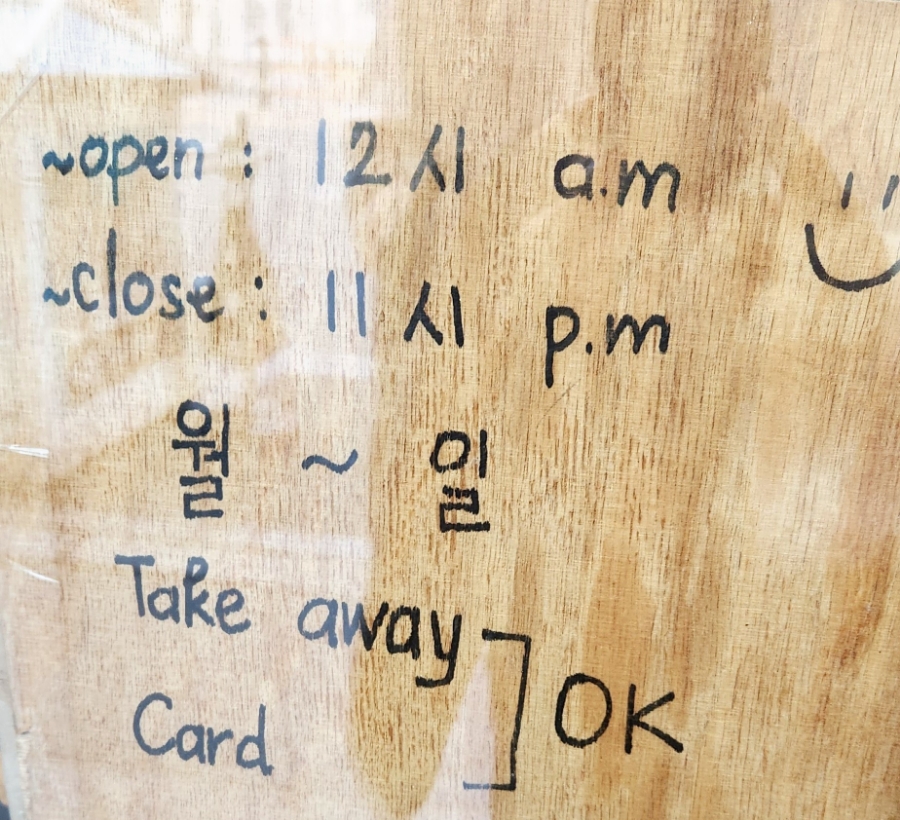 ~open : 12시 a.m
~close : 11시 p.m
월 ~ 일
Take away
Card
OK